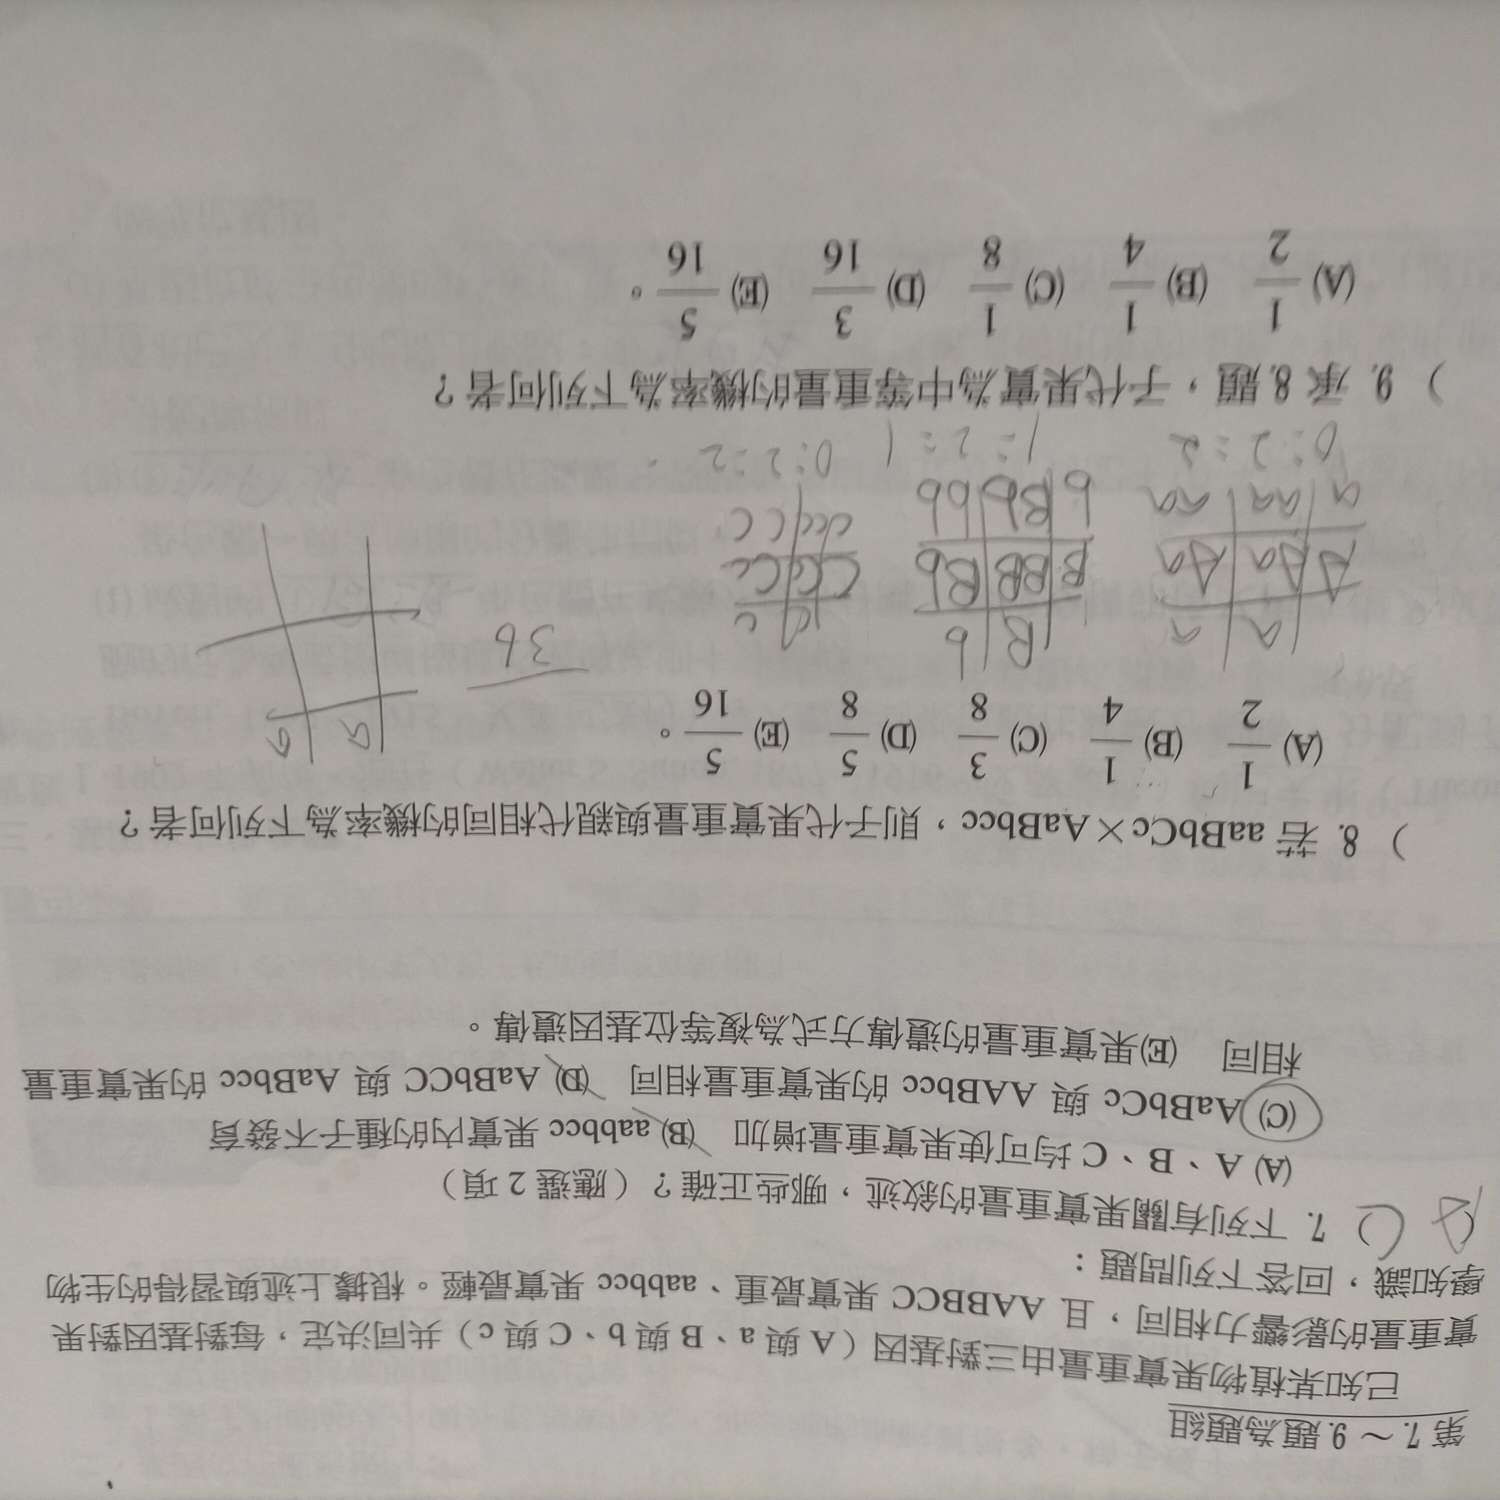 第 7.～9.題為題組
已知某植物果實重量由三對基因（A 與 a、B 與 b、C 與 c）共同決定，每對基因對果
實重量的影響力相同，且 AABBCC 果實最重、aabbcc 果實最輕。根據上述與習得的生物
學知識，回答下列問題：
）7. 下列有關果實重量的敘述，哪些正確？（應選 2 項）
(A) A、B、C 均可使果實重量增加 (B) aabbcc 果實內的種子不發育
(C) AaBbCc 與 AABbcc 的果實重量相同 (D) AaBbCC 與 AaBbcc 的果實重量
相同 (E)果實重量的遺傳方式為複等位基因遺傳。
）8. 若 aaBbCc×AaBbcc，則子代果實重量與親代相同的機率為下列何者？
(A) 1/2 (B) 1/4 (C) 3/8 (D) 5/8 (E) 5/16。
a a
B b
c c
36
a a
A Aa Aa
B BB Bb
C Cc Cc
a aa aa
b Bb bb
c cc cc
0:2:2
1:2:1
0:2:2
）9. 承 8.題，子代果實為中等重量的機率為下列何者？
(A) 1/2 (B) 1/4 (C) 1/8 (D) 3/16 (E) 5/16。